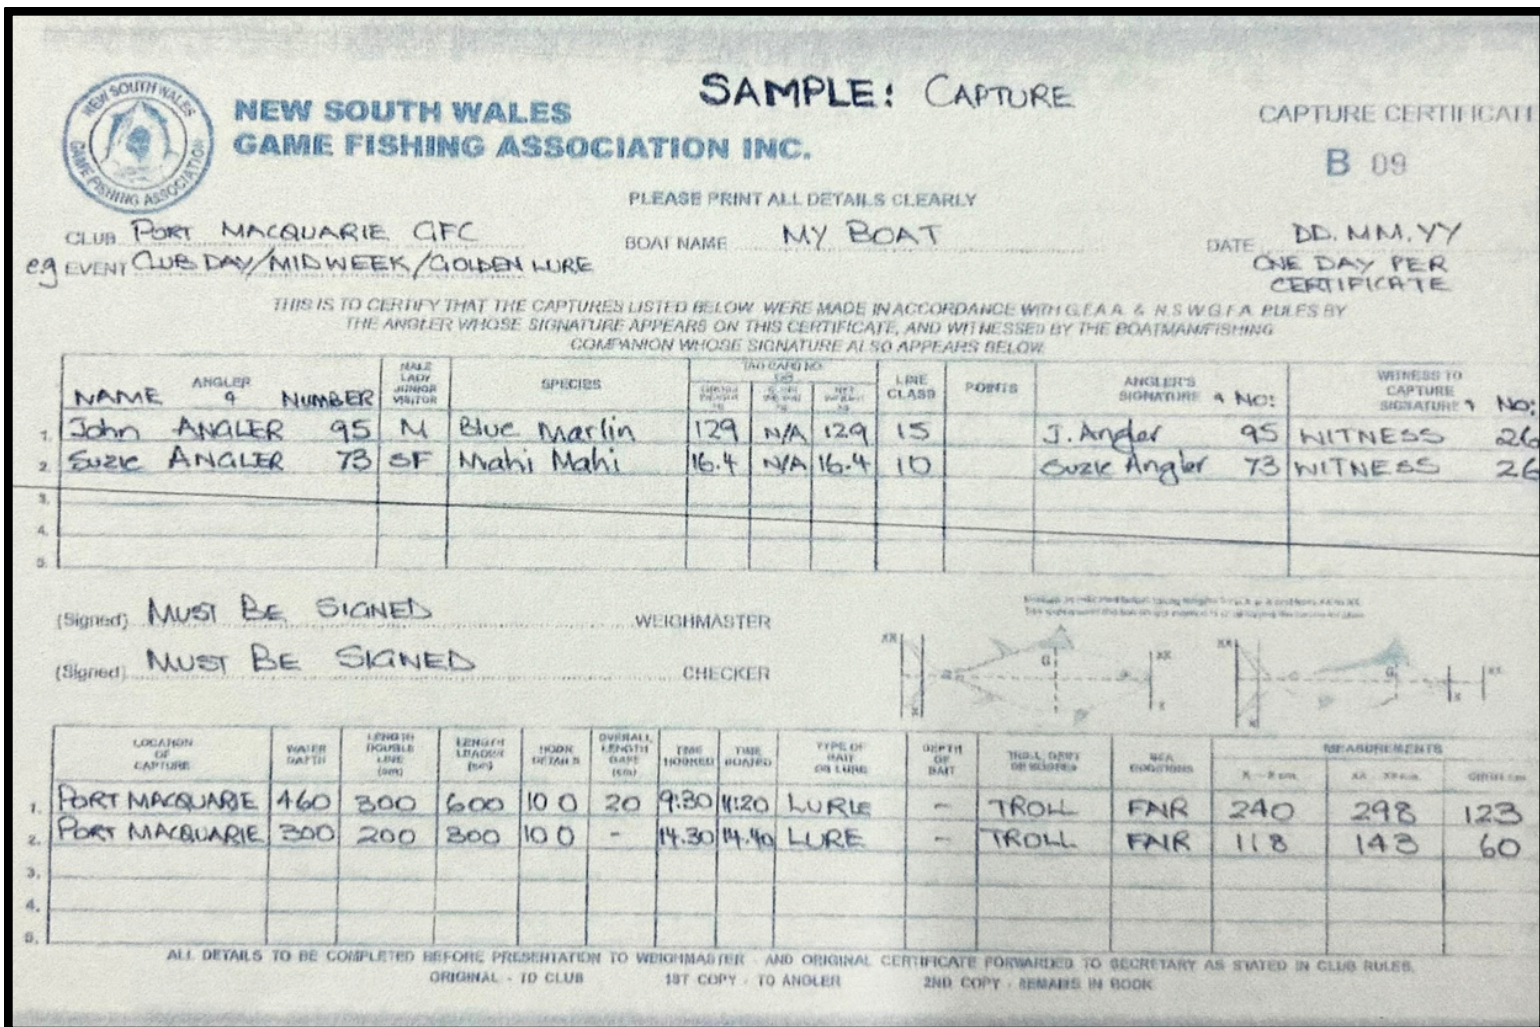 SAMPLE: CAPTURE
NEW SOUTH WALES GAME FISHING ASSOCIATION
NEW SOUTH WALES
GAME FISHING ASSOCIATION INC.
CAPTURE CERTIFICATE
B 09
PLEASE PRINT ALL DETAILS CLEARLY
CLUB PORT MACQUARIE GFC BOAT NAME MY BOAT DATE DD.MM.YY
eg EVENT CLUB DAY/MIDWEEK/GOLDEN LURE ONE DAY PER
CERTIFICATE
THIS IS TO CERTIFY THAT THE CAPTURES LISTED BELOW WERE MADE IN ACCORDANCE WITH G.F.A.A. & N.S.W.G.F.A. RULES BY
THE ANGLER WHOSE SIGNATURE APPEARS ON THIS CERTIFICATE, AND WITNESSED BY THE BOATMAN/FISHING
COMPANION WHOSE SIGNATURE ALSO APPEARS BELOW
NAME ANGLER & NUMBER MALE LADY JUNIOR VISITOR SPECIES TAG CARD NO. LINE CLASS POINTS ANGLER'S SIGNATURE & NO: WITNESS TO CAPTURE SIGNATURE & NO:
1. John ANGLER 95 M Blue Marlin 129 N/A 129 15 J. Angler 95 WITNESS 26
2. Suzie ANGLER 73 SF Mahi Mahi 16.4 N/A 16.4 10 Suzie Angler 73 WITNESS 26
3.
4.
5.
(Signed) MUST BE SIGNED WEIGHMASTER
(Signed) MUST BE SIGNED CHECKER
XX X G XX X XX X G X XX
LOCATION OF CAPTURE WATER DEPTH LENGTH DOUBLE LINE (cm) LENGTH LEADER (cm) HOOK DETAILS OVERALL LENGTH GAFF (cm) TIME HOOKED TIME BOATED TYPE OF BAIT OR LURE DEPTH OF BAIT SEA CONDITIONS MEASUREMENTS
1. PORT MACQUARIE 460 300 600 10 0 20 9:30 11:20 LURE - TROLL FAIR 240 298 123
2. PORT MACQUARIE 300 200 300 10 0 - 14.30 14.40 LURE - TROLL FAIR 118 143 60
3.
4.
5.
ALL DETAILS TO BE COMPLETED BEFORE PRESENTATION TO WEIGHMASTER - AND ORIGINAL CERTIFICATE FORWARDED TO SECRETARY AS STATED IN CLUB RULES.
ORIGINAL - TO CLUB 1ST COPY - TO ANGLER 2ND COPY - REMAINS IN BOOK